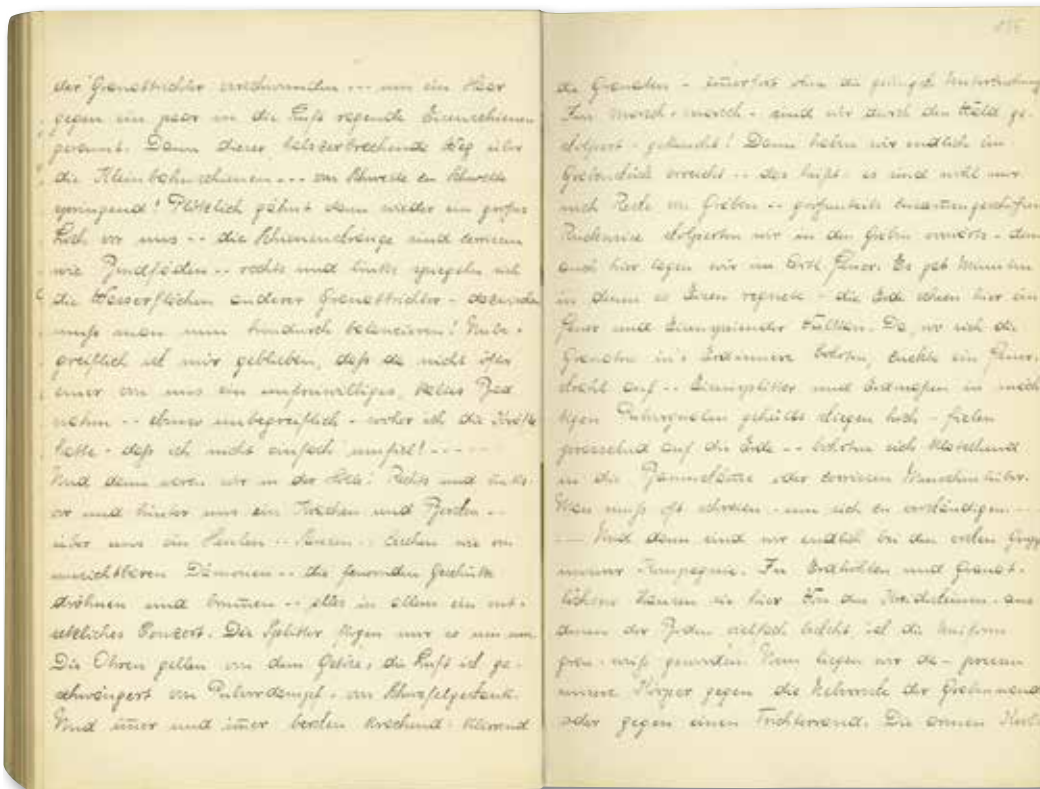 der Granattrichter verschwunden --- um ein Haar
gegen ein paar in die Luft ragende Eisenschienen
gerannt. Dann dieser halszerbrechende Weg über
die Kleinbahnschienen --- von Schwelle zu Schwelle
springend! Plötzlich gähnt dann wieder ein großes
Loch vor uns -- die Schienenstränge sind zerrissen
wie Bindfäden -- rechts und links spiegeln sich
die Wasserflächen anderer Granattrichter - dazwischen
muß man nun hindurch balancieren! Unbe-
greiflich ist mir geblieben, daß da nicht öfter
einer von uns ein unfreiwilliges, kaltes Bad
nahm -- ebenso unbegreiflich - woher ich die Kräfte
hatte - daß ich nicht einfach umfiel! -----
Und dann waren wir in der Hölle! Rechts und links-
vor und hinter uns ein Krachen und Bersten --
über uns ein Heulen -- Sausen -- Zischen wie von
unsichtbaren Dämonen -- die feuernden Geschütze
dröhnen und brummen -- alles in allem ein ent-
setzliches Konzert. Die Splitter flogen nur so um uns
Die Ohren gellen von dem Getöse, die Luft ist ge-
schwängert von Pulverdampf - von Schwefelgestank.
Und immer und immer bersten krachend - klirrend
die Granaten - immerfort ohne die geringste Unterbrechung
Im marsch-marsch - sind wir durch den Wald ge-
stolpert - gekeucht! Dann haben wir endlich ein
Grabenstück erreicht -- das heißt - es sind wohl nur
noch Reste von Gräben -- größtenteils zusammengeschossen
Ruckweise stolperten wir in den Gräben vorwärts - denn
auch hier lagen wir im Artl. Feuer. Es gab Minuten
in denen es Eisen regnete - die Erde schien hier ein
Feuer und Eisen speiender
Granaten in's Erdinnere bohrten, zuckte ein Feuer-
strahl auf -- Eisensplitter und Erdmaßen in mäch-
tigen Pulverqualm gehüllt stiegen hoch - fielen
prasselnd auf die Erde -- bohrten sich klatschend
in die Baumklötze oder zerrissen Menschenleiber.
Man muß oft schreien - um sich zu verständigen ---
---- Und dann sind wir endlich bei den ersten Grupp
unserer Kompagnie. In Erdhöhlen und Granat-
löchern hausen sie hier. Von den Kreidesteinen - aus
denen der Boden vielfach besteht ist die Uniform
grau-weiß geworden. Nun liegen wir da - pressen
unsere Körper gegen die Überreste der Grabenwand
oder gegen einen Trichterrand. Die armen Kerle